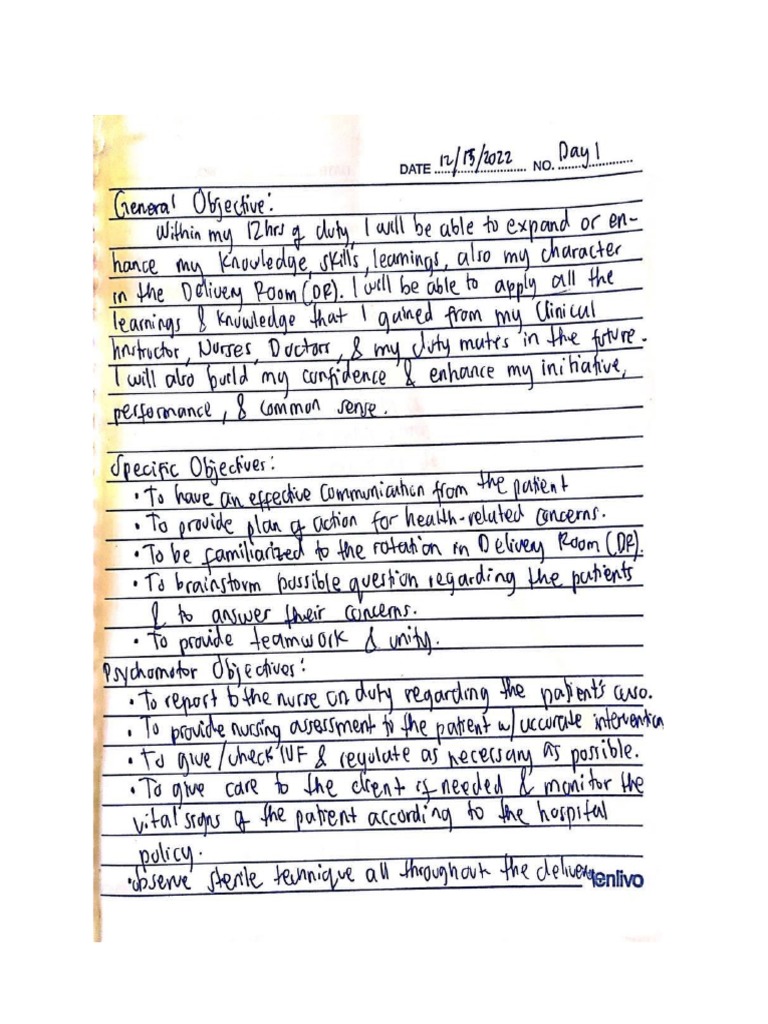 DATE 12/15/2022 NO. Day 1
General Objective:
Within my 12hrs of duty, I will be able to expand or en-
hance my knowledge, skills, learnings, also my character
in the Delivery Room (DR). I will be able to apply all the
learnings & knowledge that I gained from my Clinical
Instructor, Nurses, Doctors, & my duty mates in the future.
I will also build my confidence & enhance my initiative,
performance, & common sense.
Specific Objectives:
• To have an effective communication from the patient
• To provide plan of action for health-related concerns.
• To be familiarized to the rotation in Delivery Room (DR).
• To brainstorm possible question regarding the patients
& to answer their concerns.
• To provide teamwork & unity.
Psychomotor Objectives:
• To report to the nurse on duty regarding the patient's case.
• To provide nursing assessment to the patient w/ accurate intervention
• To give/check IVF & regulate as necessary as possible.
• To give care to the client if needed & monitor the
vital signs of the patient according to the hospital
policy.
• observe sterile technique all throughout the delivery
enlivo